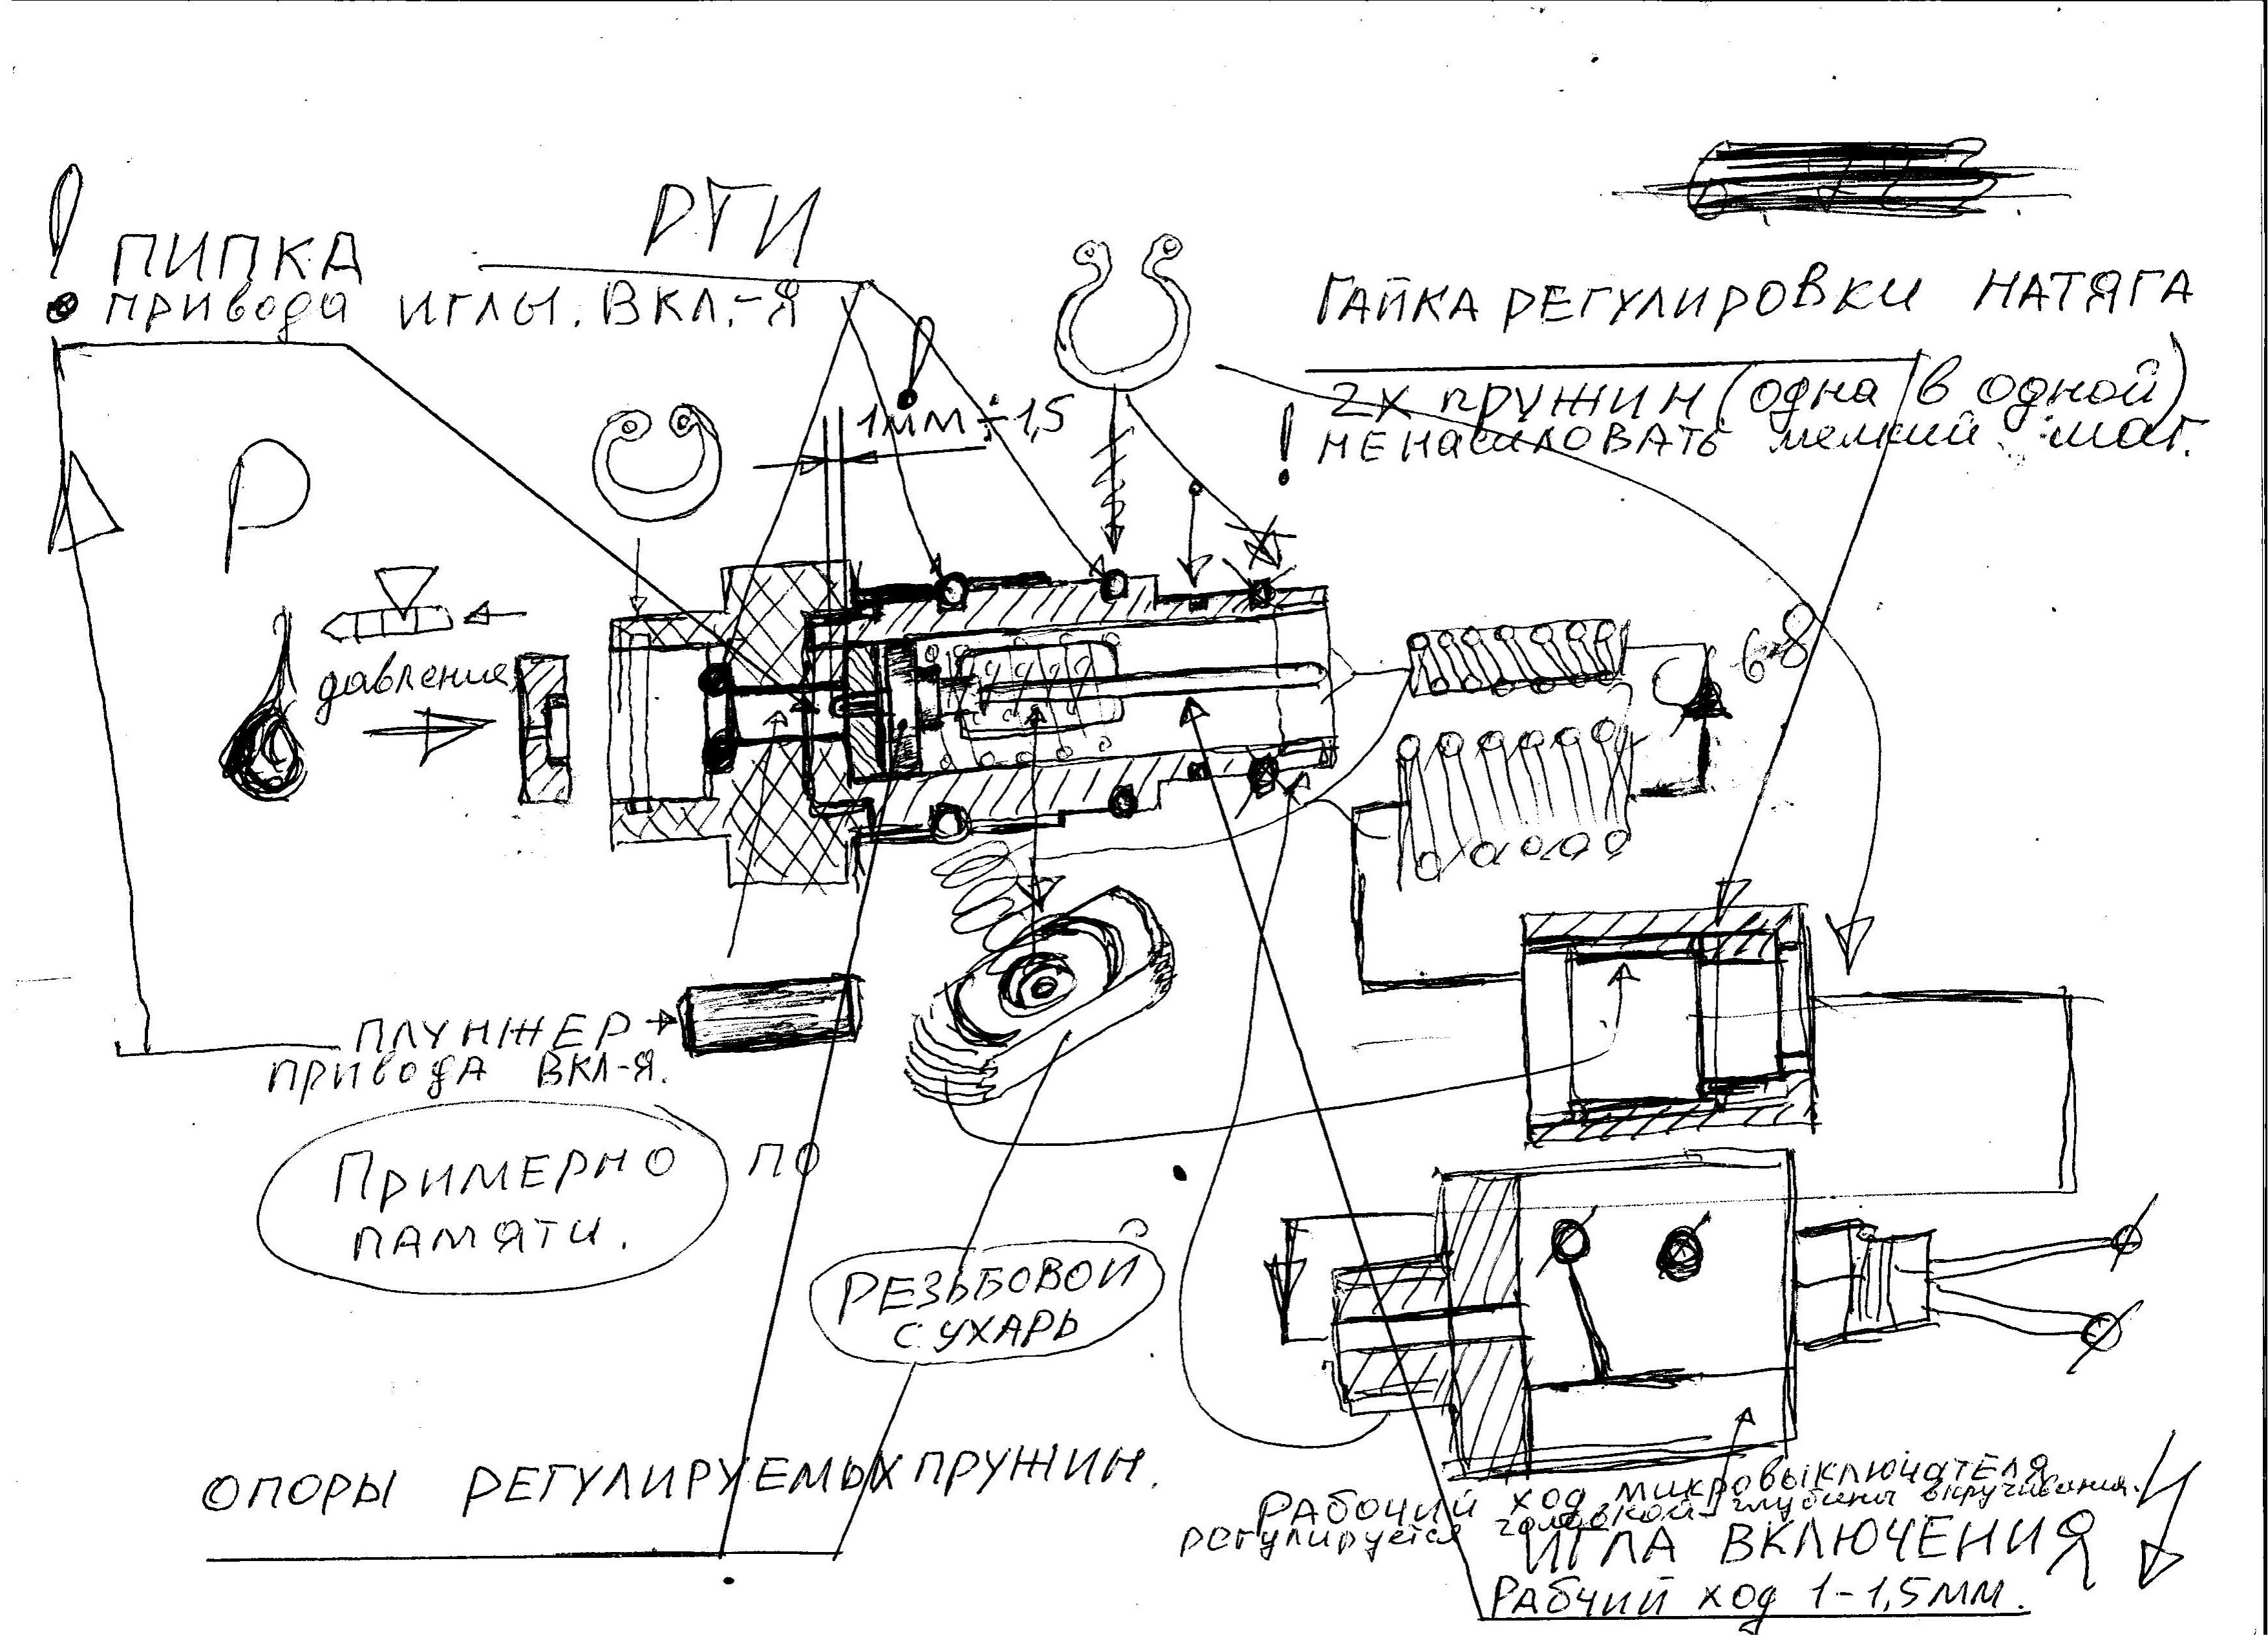 ! ПИПКА
привода ИГЛЫ. ВКЛ.-Я
РТИ
ГАЙКА РЕГУЛИРОВКИ НАТЯГА
2х пружин (одна в одной)
! НЕ НАСИЛОВАТЬ мелкий шаг.
1мм÷1,5
Р
давление
6-8
ПЛУНЖЕР
ПРИВОДА ВКЛ-Я.
ПРИМЕРНО ПО
ПАМЯТИ.
РЕЗЬБОВОЙ
СУХАРЬ
ОПОРЫ РЕГУЛИРУЕМЫХ ПРУЖИН.
Рабочий ход микровыключателя
регулируется головкой глубины вкручивания.
ИГЛА ВКЛЮЧЕНИЯ
Рабчий ход 1-1,5мм.